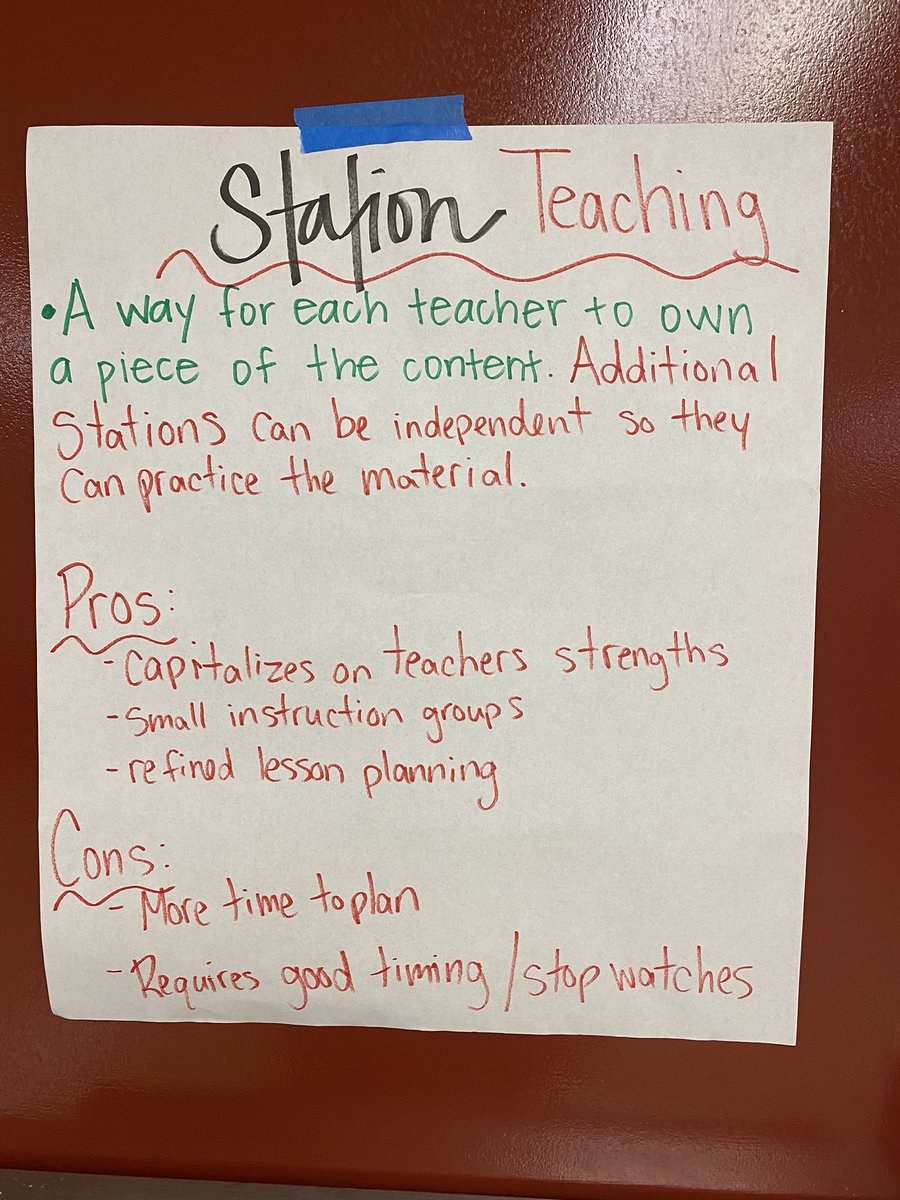 Station Teaching
• A way for each teacher to own
a piece of the content. Additional
Stations can be independent so they
can practice the material.
Pros:
- Capitalizes on teachers strengths
- Small instruction groups
- refined lesson planning
Cons:
- More time to plan
- Requires good timing / stop watches